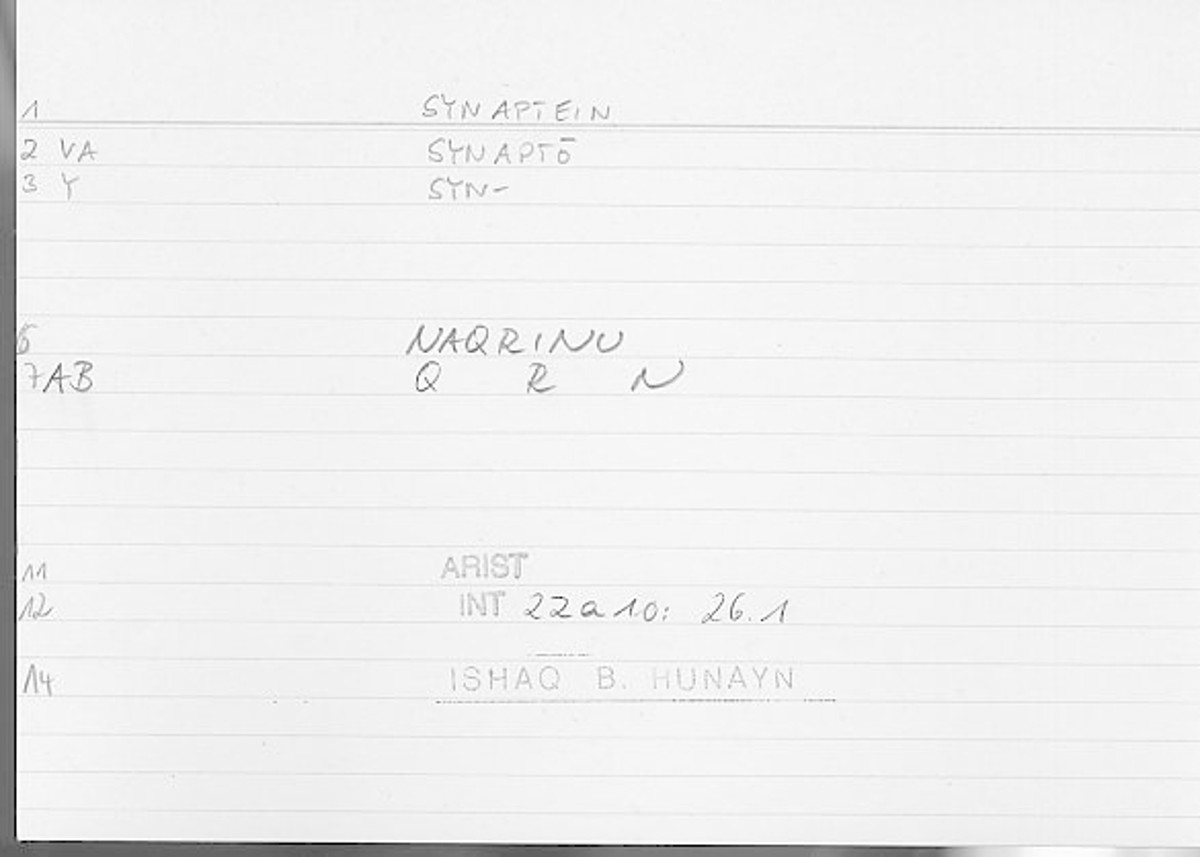 1 SYNAPTEIN
2 VA SYNAPTŌ
3 Y SYN-
6 NAQRINU
7AB Q R N
11 ARIST
12 INT 22a10: 26.1
14 ISHAQ B. HUNAYN